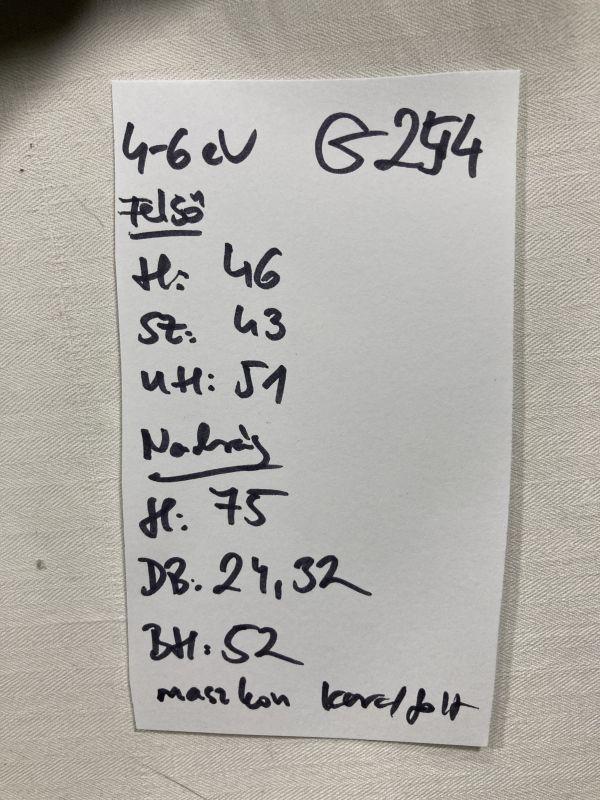 4-6 év
Felső
H: 46
SZ: 43
UH: 51
Nadrág
H: 75
DB: 24,32
BH: 52
maszkon